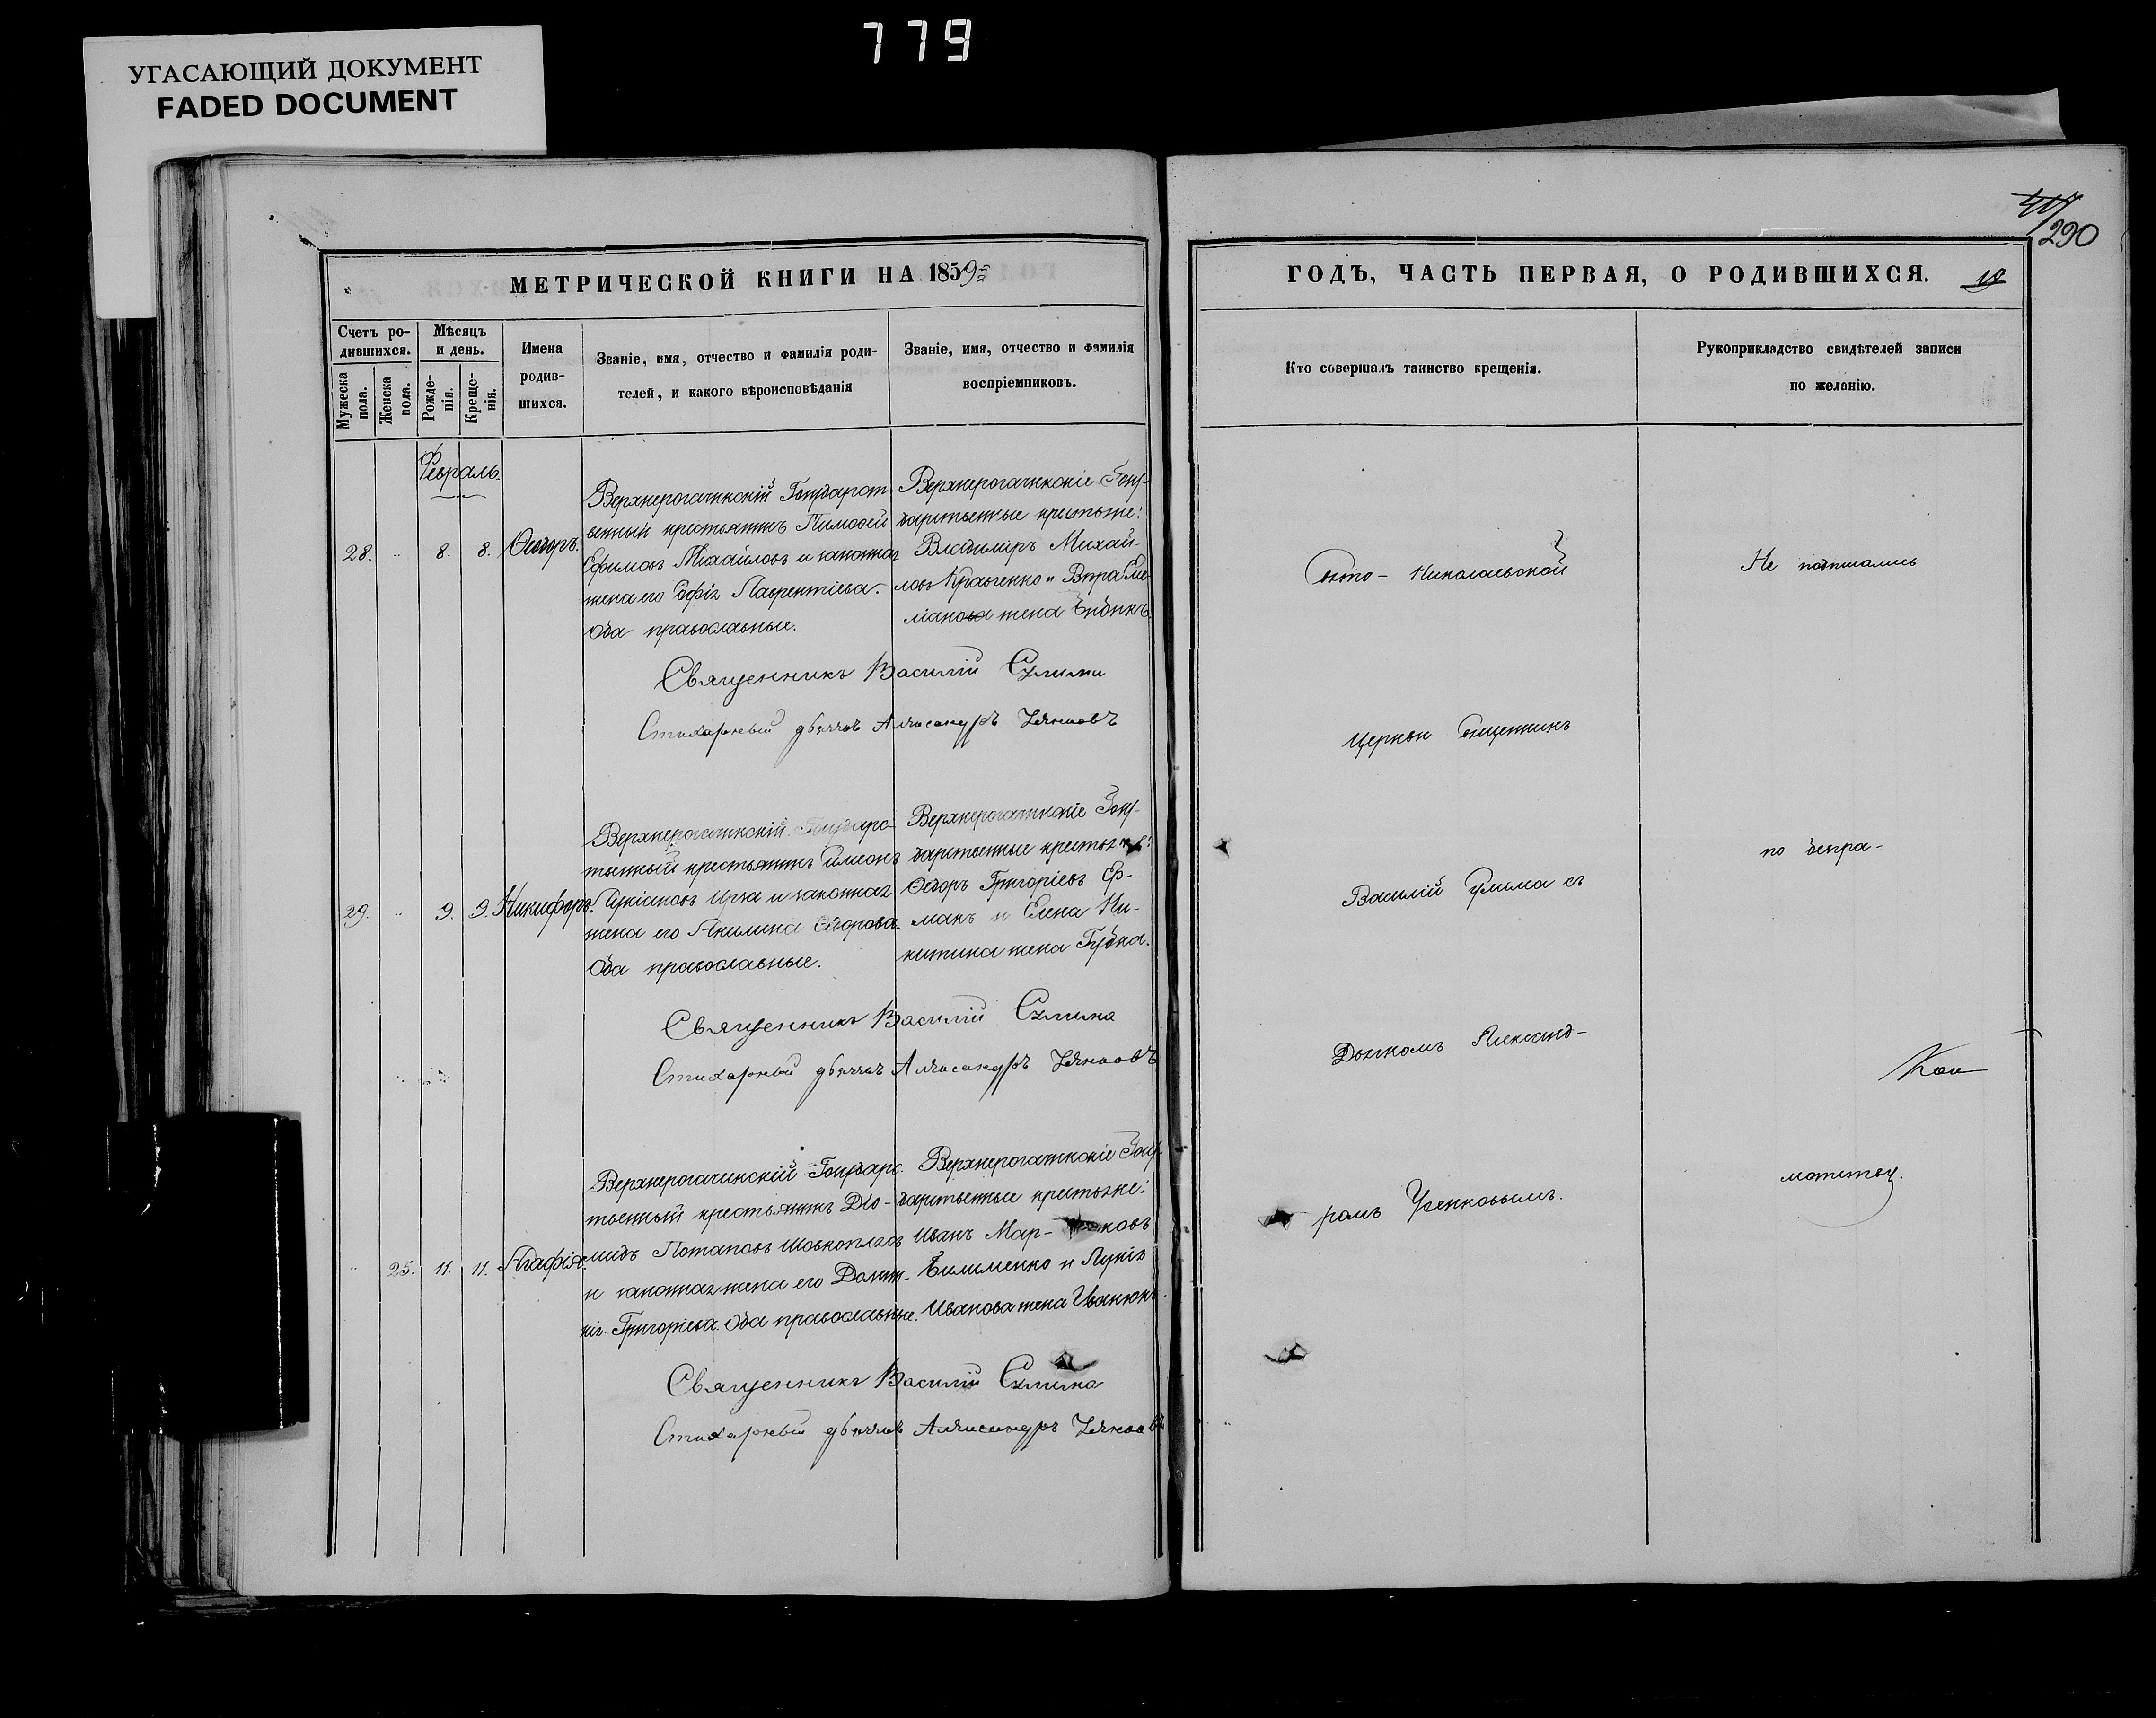 779
УГАСАЮЩИЙ ДОКУМЕНТ
FADED DOCUMENT
290
МЕТРИЧЕСКОЙ КНИГИ НА 1859
Счетъ ро-
дившихся.
Мужеска
пола.
Женска
пола.
Мѣсяцъ
и день.
Рожде-
нія.
Креще-
нія.
Имена
родив-
шихся.
Званіе, имя, отчество и фамилія роди-
телей, и какого вѣроисповѣданія
Званіе, имя, отчество и фамилія
воспріемниковъ.
Февраль
28. " 8. 8. Ѳедоръ.
Верхнерогачикскій Государст-
венный крестьянинъ Тимоѳей
Ефимовъ Михайловъ и законная
жена его Софія Лаврентіева.
Оба православные.
Верхнерогачикскіе Госу-
дарственные крестьяне:
Владиміръ Михай-
ловъ Кравченко и
жена
Священникъ Василій Сулима
Стихарный дьячокъ Александръ
29. " 9. 9. Никифоръ.
Верхнерогачикскій Государс-
твенный крестьянинъ Симеонъ
Лукіановъ и законная
жена его Акилина Ѳедорова
Оба православные.
Верхнерогачикскіе Госу-
дарственные крестьяне:
Ѳедоръ Григоріевъ Ер-
макъ и Елена Ни-
китина жена Губка.
Священникъ Василій Сулима
Стихарный дьячокъ Александръ
" 25. 11. 11. Агафія.
Верхнерогачикскій Государс-
твенный крестьянинъ Діо-
мидъ Потаповъ
и законная жена его Домни-
кія Григоріева. Оба православные.
Верхнерогачикскіе Госу-
дарственные крестьяне:
Иванъ Мар- ковъ
Билименко и Лукія
Иванова жена Иванюкъ.
Священникъ Василій Сулима
Стихарный дьячокъ Александръ
ГОДЪ, ЧАСТЬ ПЕРВАЯ, О РОДИВШИХСЯ.
Кто совершалъ таинство крещенія.
Рукоприкладство свидѣтелей записи
по желанію.
Свято-Николаевской
Церкви Священникъ
Василій Сулима съ
Дьячкомъ Александ-
ромъ
Не подписались
по безгра-
мотству.